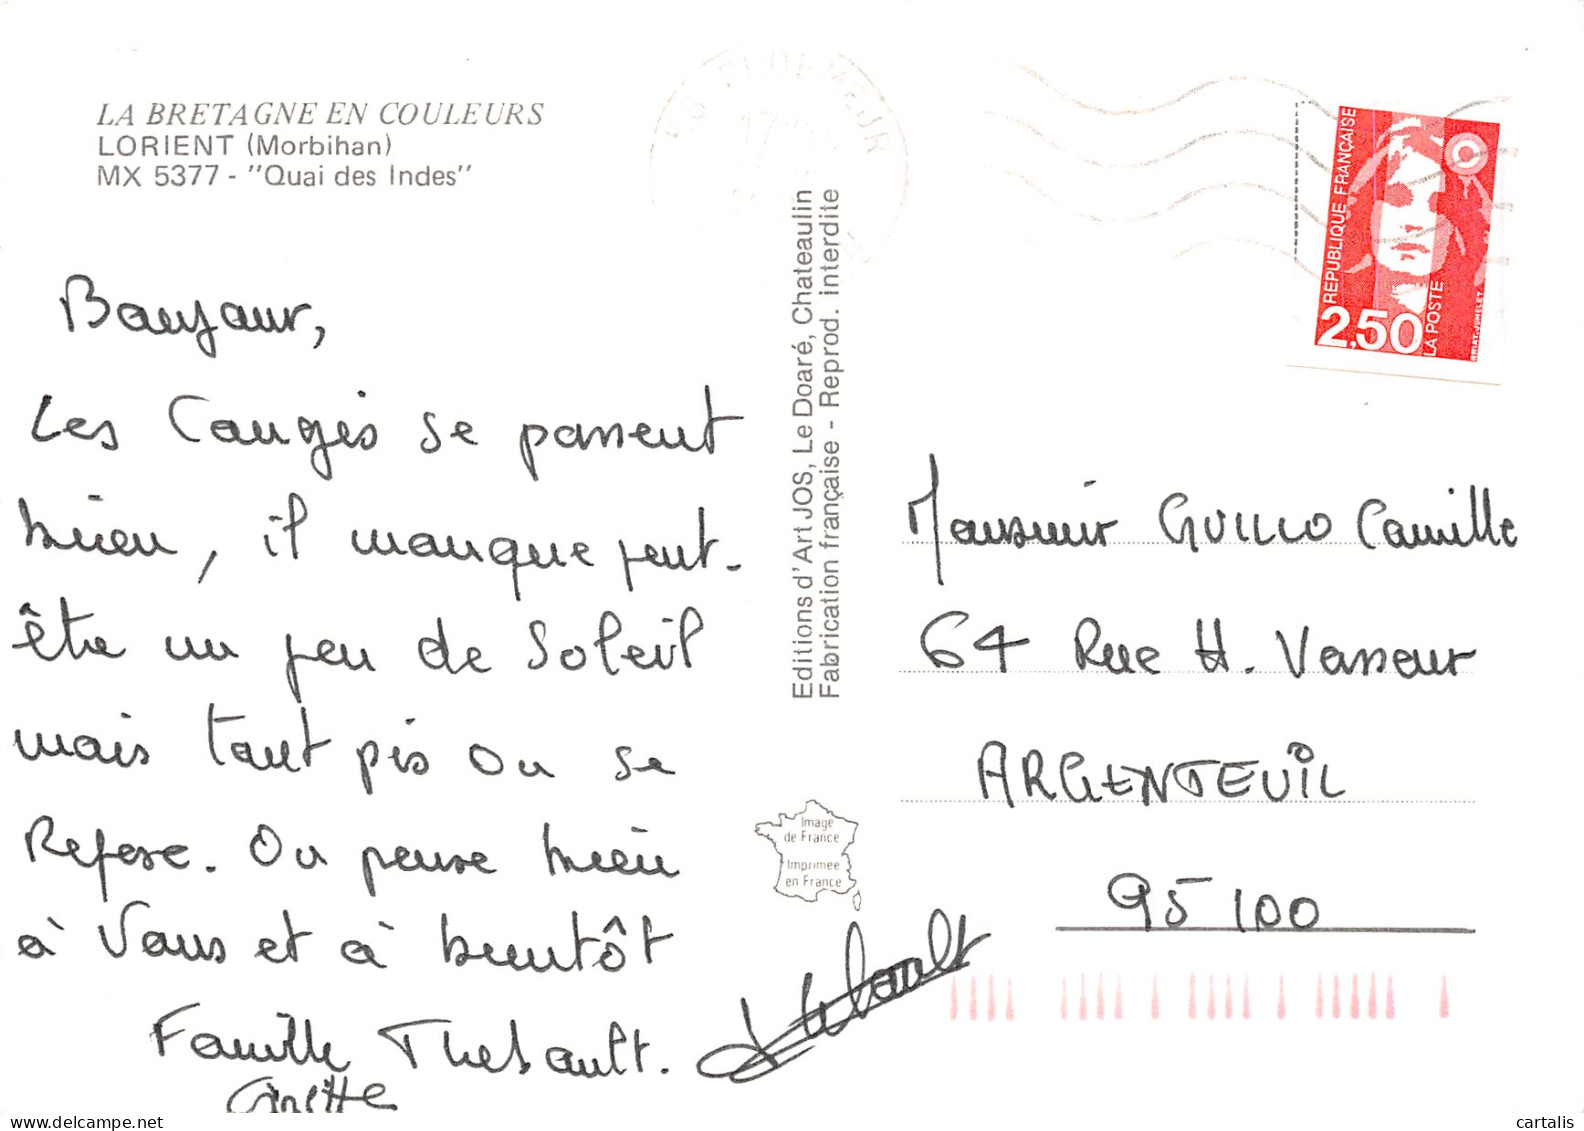 LA BRETAGNE EN COULEURS
LORIENT (Morbihan)
MX 5377 - "Quai des Indes"
Bonjour,
Les Congés se passent
bien, il manque peut-
être un peu de Soleil
mais tant pis on se
Repose. On pense bien
à Vous et à bientôt
Famille Thebault.
Ginette
Thebault
Editions d'Art JOS, Le Doaré, Chateaulin
Fabrication française - Reprod. interdite
Image
de France
Imprimée
en France
PLOEMEUR
17
REPUBLIQUE FRANÇAISE
2,50
LA POSTE
BRIAT-JUMELET
Monsieur GUILLO Camille
64 Rue H. Vasseur
ARGENTEUIL
95100
delcampe.net
cartalis